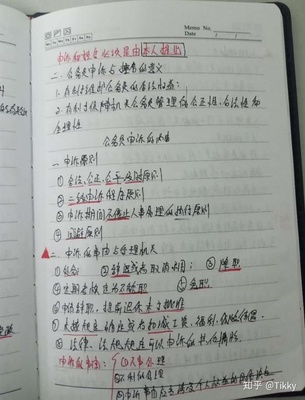 Memo No.
Date / /
申诉和控告必须是由本人提出
二、公务员申诉与控告的意义
1. 有利于维护公务员的合法权益;
2. 有利于保障机关公务员管理的公正性、合法性和
合理性
公务员申诉的
一、申诉原则
① 合法、公正、公平、及时原则
② 二级申诉 原则
③ 申诉期间不停止人事处理的执行原则
④ 回避原则
二、申诉的事由与受理机关
① 处分 ② 辞退或取消录用; ③ 降职
④ 定期考核定为不称职 ⑤ 免职
⑥ 申请辞职、提前退休未予批准
⑦ 未按规定确定或者扣减工资、福利、保险待遇
⑧ 法律、法规规定可以申诉的其他情形。
① 人事处理
知乎 @Tikky